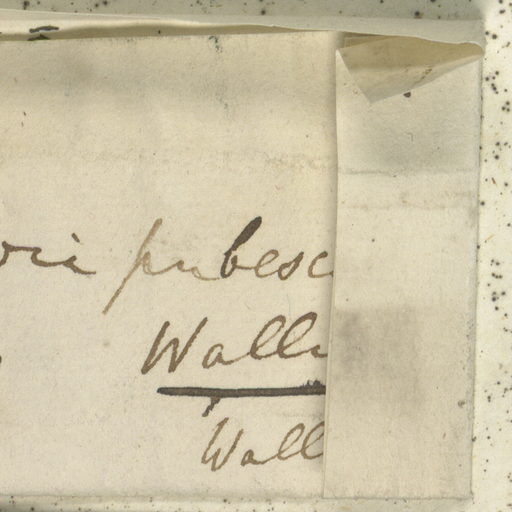 pubesc
Walli
Wall